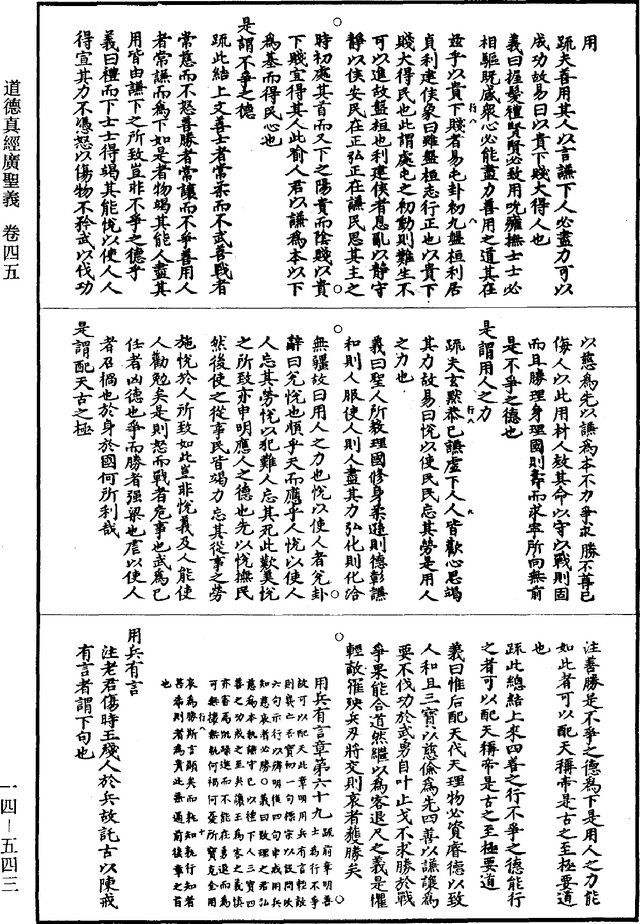 道德真經廣聖義 卷四五
一四-五四三
用
疏夫善用其人以言謙下人必盡力可以
成功故易曰以貴下賤大得人也
義曰握髮禮賢賢必致用吮癰撫士士必
相驅既感衆心必能盡力善用之道其在
茲乎以貴下賤者易屯卦初九盤桓利居
貞利建侯象曰雖盤桓志行正也以貴下
賤大得民也此謂處屯之初動則難生不
可以進故盤桓也利建侯者息亂以靜守
靜以侯安民在正弘正在謙民思其主之
時初處其首而又下之陽貴而陰賤以貴
下賤宜得其人此喻人君以謙為本以下
為基而得民心也
是謂不爭之德
疏此結上文善士者常柔而不武善戰者
常慈而不怒善勝者常讓而不爭善用人
者常謙而為下如是者物竭其能人盡其
用皆由謙下之所致豈非不爭之德乎
義曰禮而下士士得竭其能悅以使人人
得宣其力不憑怒以傷物不矜武以伐功
以慈為先以謙為本不力爭求勝不尊己
侮人以此用材人效其命以守以戰則固
而且勝理身理國則壽而求寧所向無前
是不爭之德也
是謂用人之力
疏夫玄默恭己謙虛下人人皆歡心思竭
其力故易曰悅以使民民忘其勞是用人
之力也
義曰聖人所教理國修身柔遜則德彰謙
和則人服使人則人盡其力弘化則化洽
無疆故曰用人之力也悅以使人者兌卦
辭曰兌悅也順乎天而應乎人悅以使人
人忘其勞悅以犯難人忘其死此歎美悅
之所致亦申明應人之德也先以悅撫民
然後使之從事民皆竭力忘其從事之勞
施悅於人所致如此豈非悅義及人能使
人勸勉矣是則怒而戰者危事也武為已
任者凶德也爭而勝者强梁也虐以使人
者召禍也於身於國何所利哉
是謂配天古之極
注善勝是不爭之德為下是用人之力能
如此者可以配天稱帝是古之至極要道
也
疏此總結上來四善之行不爭之德能行
之者可以配天稱帝是古之至極要道
義曰惟后配天代天理物必資睿德以致
人和且三寶以慈儉為先四善以謙讓為
要不伐功於武勇自叶止戈不求勝於戰
爭果能合道然繼以為客退尺之義是懼
輕敵罹殃兵刃將交則哀者獲勝矣
用兵有言章第六十九
用兵有言
注老君傷時王殘人於兵故託古以陳戒
有言者謂下句也